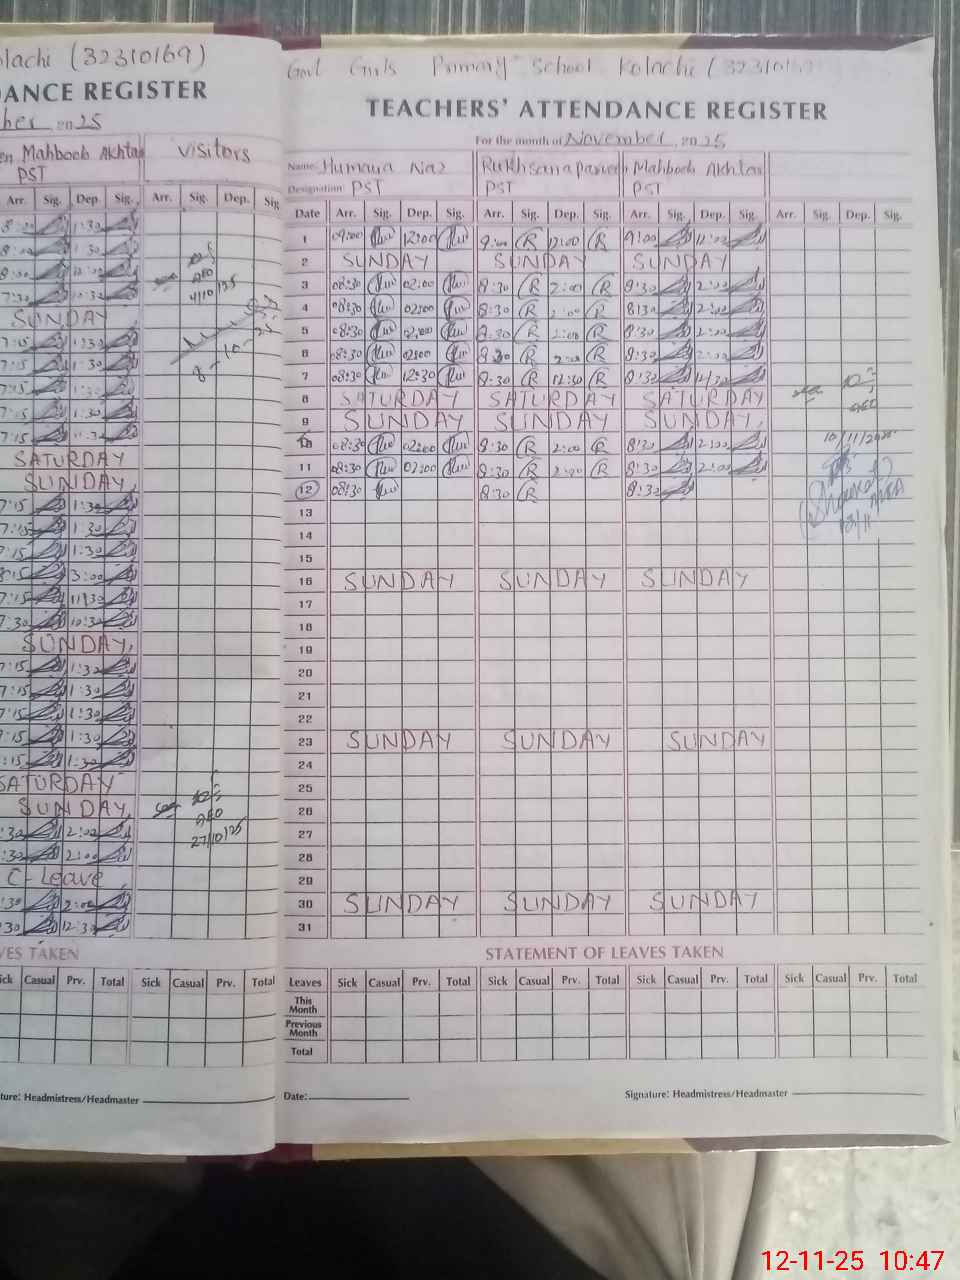 lachi (32310169)
DANCE REGISTER
ber , 20 25
en Mahboob Akhtar
PST
Visitors
Arr. Sig. Dep. Sig. Arr. Sig. Dep. Sig
1:30
1:30
8:30 12:00
7:30 10:30
4/10/25
SUNDAY
7:15 1:30
7:15 1:30
8-10-25
7:15 1:30
7:15 1:30
7:15 11:30
SATURDAY
SUNDAY,
7:15 1:30
7:15 1:30
7:15 1:30
8:15 3:00
7:15 11:30
7:30 10:30
SUNDAY,
7:15 1:30
7:15 1:30
7:15 1:30
7:15 1:30
:15 1:30
SATURDAY
SUNDAY,
:30 2:00
27/10/25
:30 2:00
C-Leave
:30 2:00
:30 12:30
VES TAKEN
ick Casual Prv. Total Sick Casual Prv. Total
ture: Headmistress/Headmaster
Govt Girls Primary School Kolachi (32310169
TEACHERS' ATTENDANCE REGISTER
For the month of November, 20 25
Name: Humaira Naz Rukhsana parveen Mahboob Akhtar
Designation PST PST PST
Date Arr. Sig. Dep. Sig. Arr. Sig. Dep. Sig. Arr. Sig. Dep. Sig. Arr. Sig. Dep. Sig.
1 09:00 12:00 9:00 R 12:00 R 9:00 12:00
2 SUNDAY SUNDAY SUNDAY
3 08:30 02:00 8:30 R 2:00 R 8:30 2:00
4 08:30 02:00 8:30 R 2:00 R 8:30 2:00
5 08:30 02:00 8:30 R 2:00 R 8:30 2:00
6 08:30 02:00 8:30 R 2:00 R 8:30 2:00
7 08:30 12:30 8:30 R 12:30 R 8:30 12:30
8 SATURDAY SATURDAY SATURDAY
9 SUNDAY SUNDAY SUNDAY,
10 08:30 02:00 8:30 R 2:00 R 8:30 2:00 10/11/2025
11 08:30 02:00 8:30 R 2:00 R 8:30 2:00
12 08:30 8:30 R 8:30
13
14
15
16 SUNDAY SUNDAY SUNDAY
17
18
19
20
21
22
23 SUNDAY SUNDAY SUNDAY
24
25
26
27
28
29
30 SUNDAY SUNDAY SUNDAY
31
STATEMENT OF LEAVES TAKEN
Leaves Sick Casual Prv. Total Sick Casual Prv. Total Sick Casual Prv. Total Sick Casual Prv. Total
This Month
Previous Month
Total
Date: Signature: Headmistress/Headmaster
12-11-25 10:47